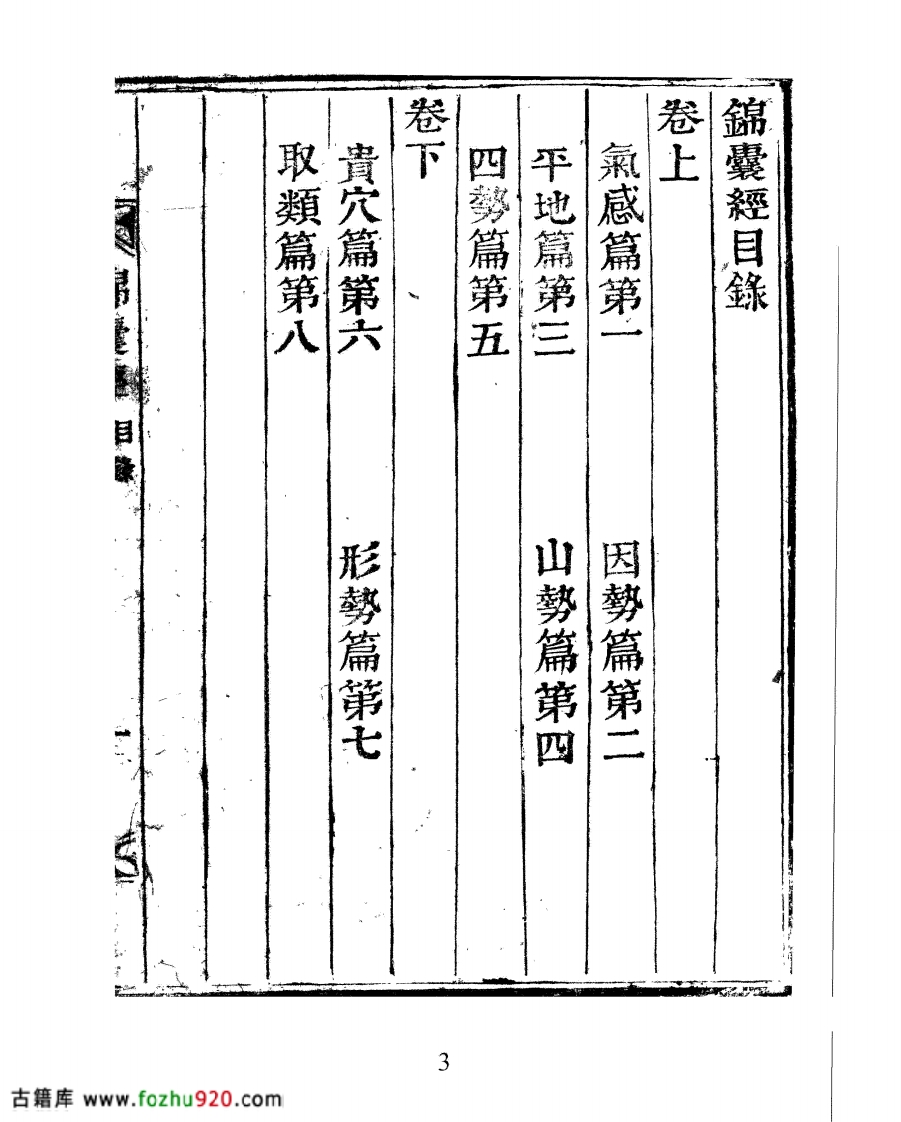 錦囊經目錄
卷上
氣感篇第一 因勢篇第二
平地篇第三 山勢篇第四
四勢篇第五
卷下
貴穴篇第六 形勢篇第七
取類篇第八
錦囊經 目錄
一
3
古籍库 www.fozhu920.com